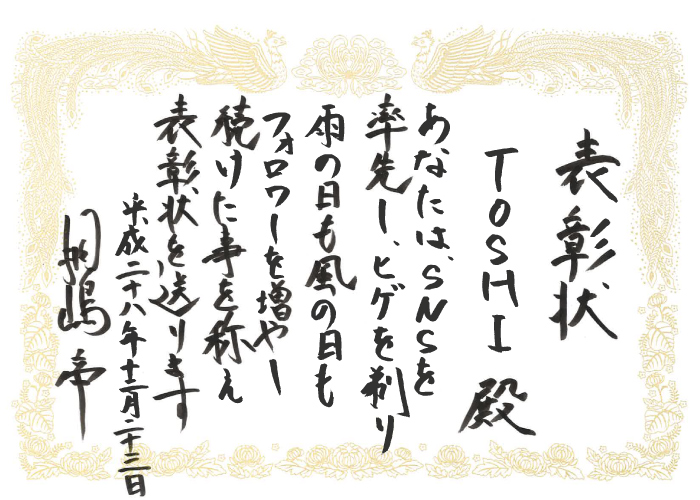 表彰状
TOSHI 殿
あなたは、SNSを
率先し、ヒゲを剃り
雨の日も風の日も
フォロワーを増やし
続けた事を称え
表彰状を送ります
平成二十八年十二月二十三日
嶋 帝